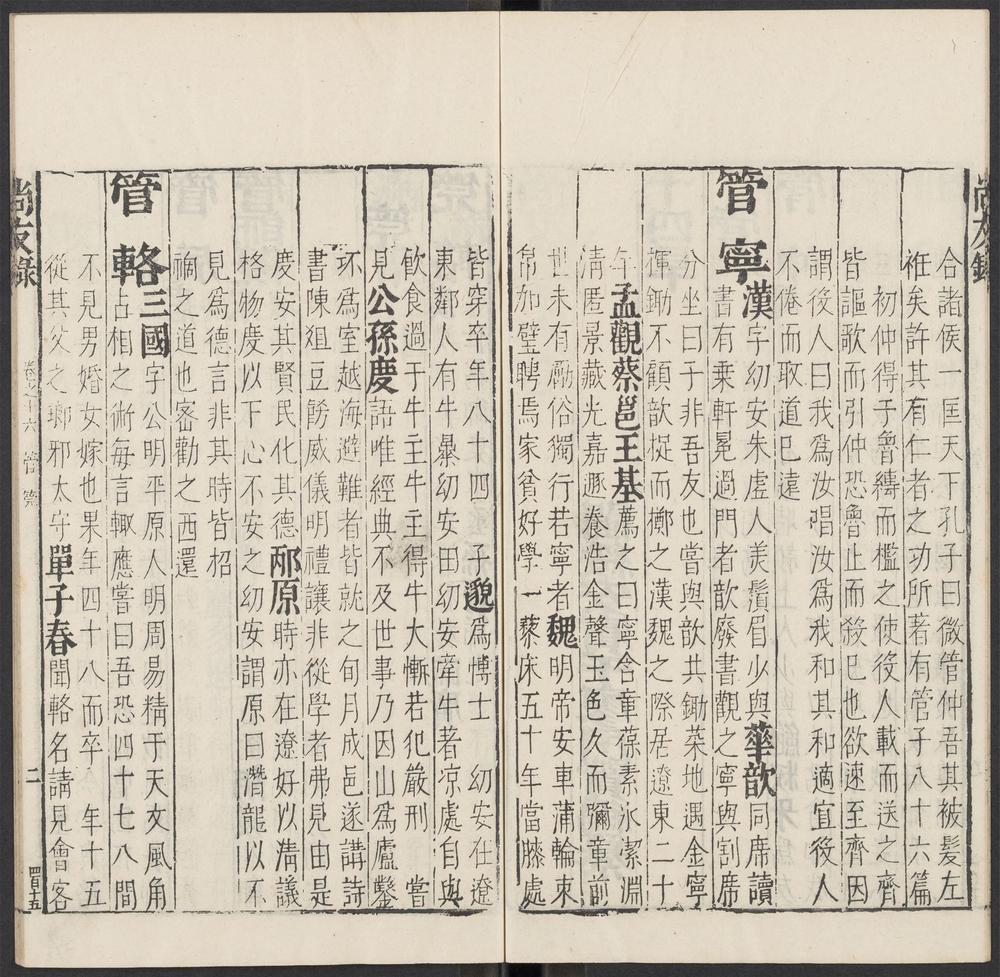 尚友錄
合諸侯一匡天下孔子曰微管仲吾其被髮左
衽矣許其有仁者之功所著有管子八十六篇
初仲得于魯縛而檻之使役人載而送之齊
皆謳歌而引仲恐魯止而殺已也欲速至齊因
謂役人曰我爲汝唱汝爲我和其和適宜役人
不倦而取道已遠
管寧漢字幼安朱虛人美鬚眉少與華歆同席讀
書有乗軒冕過門者歆廢書觀之寧與割席
分坐曰子非吾友也嘗與歆共鋤菜地遇金寧
揮鋤不顧歆捉而擲之漢魏之際居遼東二十
年孟觀蔡邕王基薦之曰寧含章葆素氷潔淵
清匿景藏光嘉遯養浩金聲玉色久而彌章前
世未有勵俗獨行若寧者魏明帝安車蒲輪束
帛加璧聘焉家貧好學一藜床五十年當膝處
皆穿卒年八十四 子邈爲博士 幼安在遼
東鄰人有牛暴幼安田幼安牽牛著凉處自與
飲食過于牛主牛主得牛大慚若犯嚴刑 嘗
見公孫慶語唯經典不及世事乃因山爲廬鑿
坏爲室越海避難者皆就之旬月成邑遂講詩
書陳俎豆餙威儀明禮讓非從學者弗見由是
慶安其賢民化其德邴原時亦在遼好以淸議
格物慶以下心不安之幼安謂原曰潛龍以不
見爲德言非其時皆招
禍之道也密勸之西還
管輅三國字公明平原人明周易精于天文風角
占相之術每言輒應嘗曰吾恐四十七八間
不見男婚女嫁也果年四十八而卒 年十五
從其父之瑯邪太守單子春聞輅名請見會客
尚友錄
卷之十六
管
二